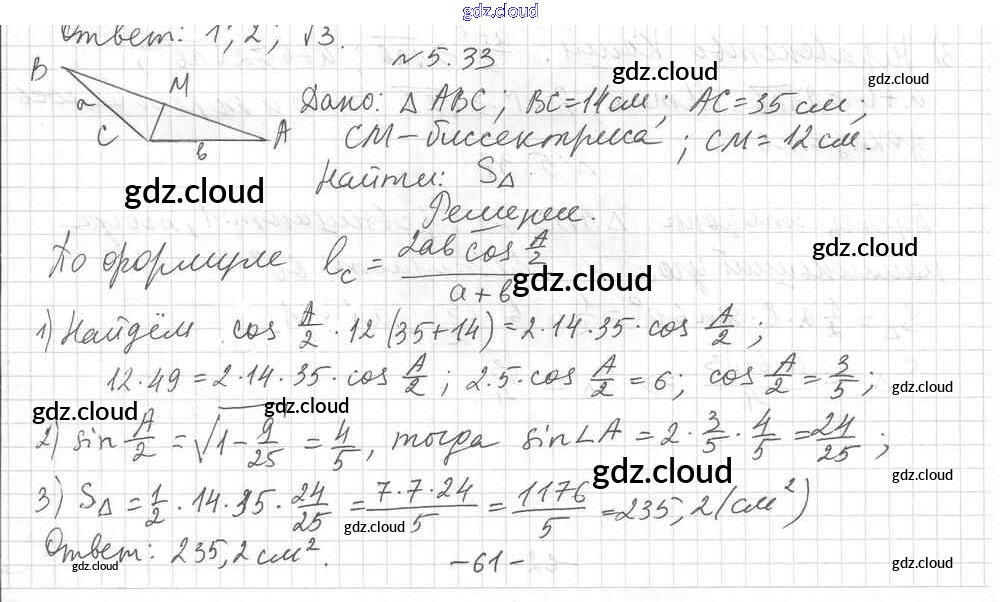 gdz.cloud
Ответ: 1; 2; √3.
№ 5.33
gdz.cloud
gdz.cloud
B
M
a
C
A
в
Дано: △ ABC; BC=14см; AC=35 см;
gdz.cloud
CM-биссектриса; CM=12см.
Найти: S△
gdz.cloud
Решение.
По формуле lc = 2ав cos A/2 / a+в
gdz.cloud
gdz.cloud
1) Найдём cos A/2 · 12 (35+14) = 2·14·35·cos A/2;
gdz.cloud
12·49 = 2·14·35·cos A/2; 2·5·cos A/2 = 6; cos A/2 = 3/5;
gdz.cloud
gdz.cloud
gdz.cloud
2) sin A/2 = √1-9/25 = 4/5, тогда sin∠A = 2·3/5·4/5 = 24/25;
gdz.cloud
gdz.cloud
3) S△ = 1/2·14·35·24/25 = 7·7·24/5 = 1176/5 = 235,2 (см²)
gdz.cloud
Ответ: 235,2 см².
-61-
gdz.cloud
gdz.cloud